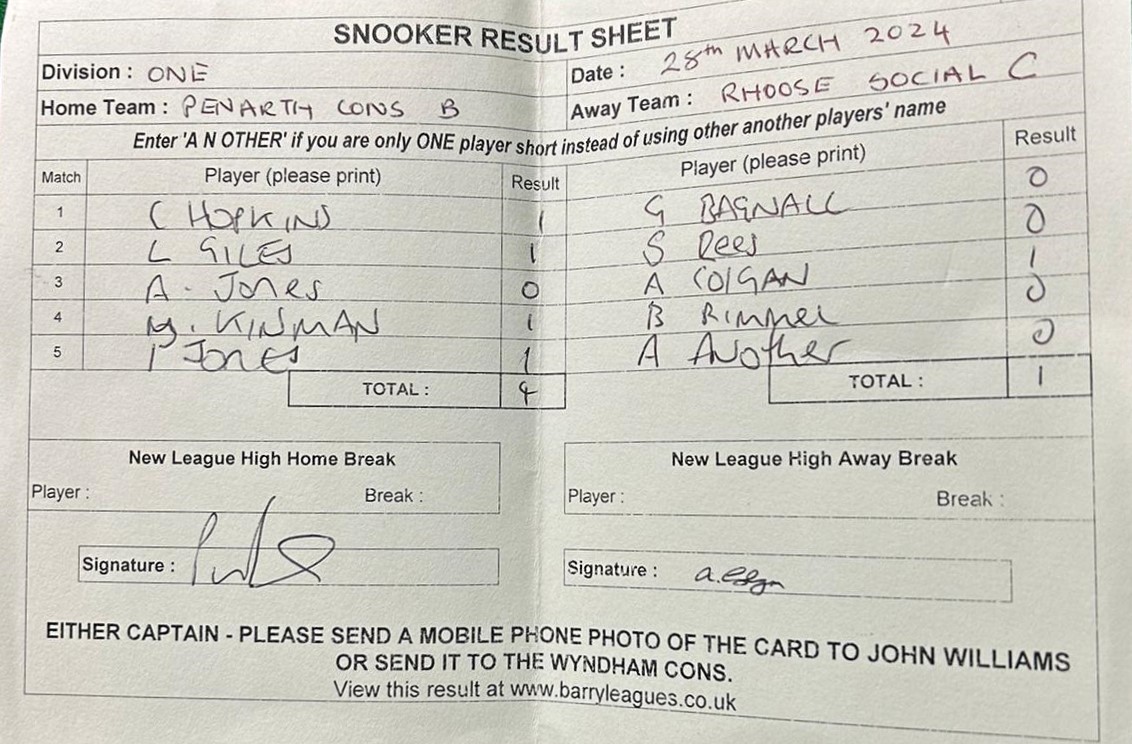 SNOOKER RESULT SHEET
Division : ONE
Date : 28th MARCH 2024
Home Team : PENARTH CONS B
Away Team : RHOOSE SOCIAL C
Enter 'A N OTHER' if you are only ONE player short instead of using other another players' name
Match Player (please print) Result Player (please print) Result
1 C HOPKINS 1 G BAGNALL 0
2 L GILES 1 S Rees 0
3 A. Jones 0 A COLGAN 1
4 M. KINMAN 1 B Rimmel 0
5 P Jones 1 A Another 0
TOTAL : 4 TOTAL : 1
New League High Home Break
New League High Away Break
Player : Break :
Player : Break :
Signature :
Signature : a.
EITHER CAPTAIN - PLEASE SEND A MOBILE PHONE PHOTO OF THE CARD TO JOHN WILLIAMS
OR SEND IT TO THE WYNDHAM CONS.
View this result at www.barryleagues.co.uk